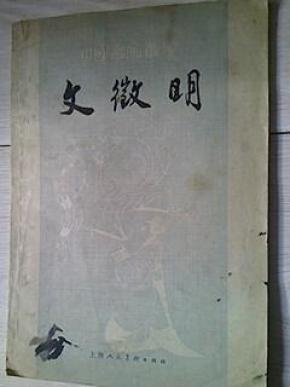 中国画家丛书
文徵明
上海人民美术出版社